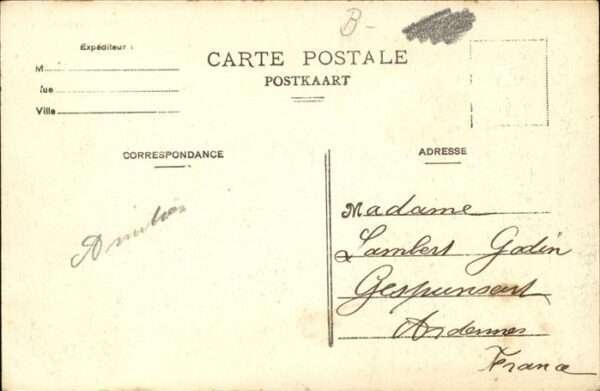 B-
Expéditeur :
M
Rue
Ville
CARTE POSTALE
POSTKAART
CORRESPONDANCE
ADRESSE
Madame
Lambert Godin
Gespunsart
Ardennes
France